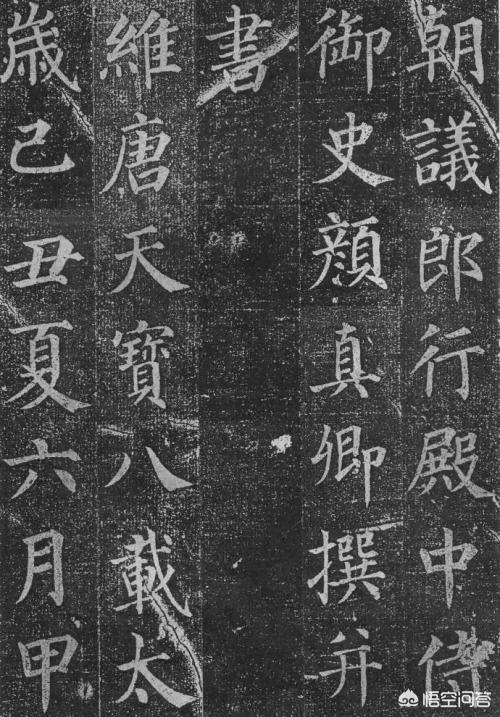 朝議郎行殿中侍
御史顔真卿撰并
書
維唐天寶八載太
歳己丑夏六月甲
悟空问答